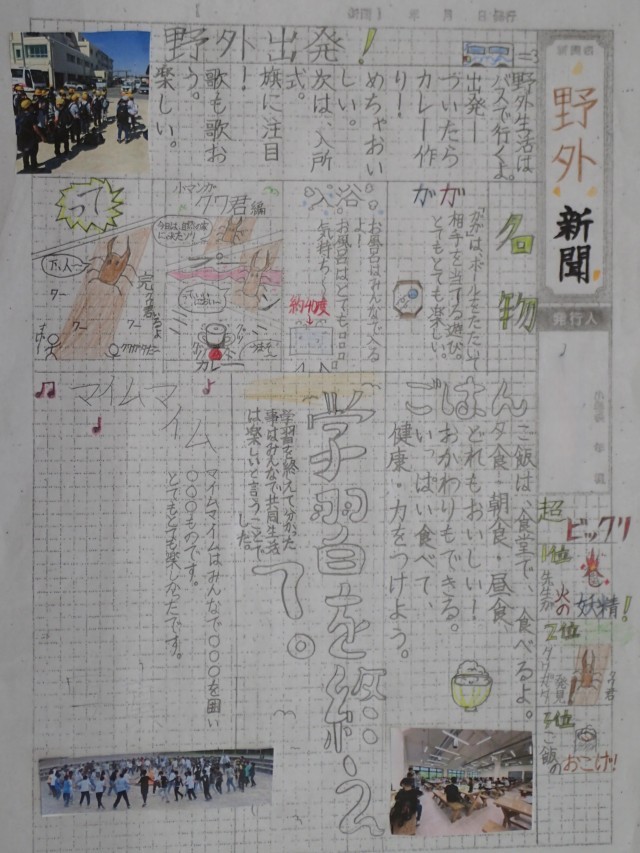 野外新聞
発行人
野外出発!
野外生活は
バスで行くよ。
出発ー
ついたら
カレー作
り!
めちゃおい
しい。
次は、入所
式。
旗に注目
!
歌も歌お
う。
楽しい。
名物
ガガ
“ガガ”は、ボールをたたいて
相手を当てる遊び。
とてもとても楽しい。
入浴
お風呂はみんなで入る
よー
お風呂はとても○○○
気持ち〜
約40度
小マンガ
クワ君編
カレー
って
ごはん
ご飯は、食堂で、食べるよ。
夕食・朝食・昼食
どれもおいしい!
おかわりもできる。
いっぱい食べて、
健康・力をつけよう。
学習を終えて。
学習を終えて分かった
事はみんなで共同生活
は楽しいと言うことで
した。
マイムマイム
マイムマイムはみんなで○○○を囲い
○○○ものです。
とてもとても楽しかたです。
超ビックリ
1位
火の妖精!
2位
発見!
3位
ご飯の
おこげ!